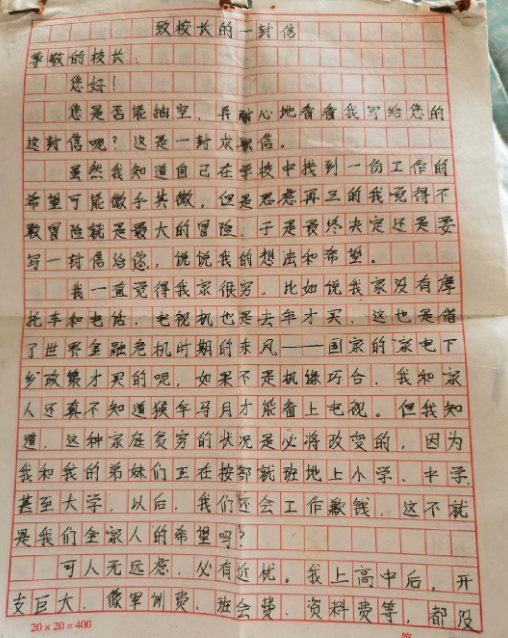 致校长的一封信
尊敬的校长:
您好!
您是否能抽空,并耐心地看看我写给您的
这封信呢?这是一封求职信。
虽然我知道自己在学校中找到一份工作的
希望可能微乎其微,但是思虑再三的我觉得不
敢冒险就是最大的冒险,于是最终决定还是要
写一封信给您,说说我的想法和希望。
我一直觉得我家很穷,比如说我家没有摩
托车和电话,电视机也是去年才买,这也是借
了世界金融危机时期的东风——国家的家电下
乡政策才买的呢,如果不是机缘巧合,我和家
人还真不知道猴年马月才能看上电视。但我知
道,这种家庭贫穷的状况是必将改变的,因为
我和我的弟妹们正在按部就班地上小学、中学、
甚至大学,以后,我们还会工作赚钱,这不就
是我们全家人的希望吗?
可人无远虑,必有近忧。我上高中后,开
支巨大,像军训费、班会费、资料费等,都没
20×20=400